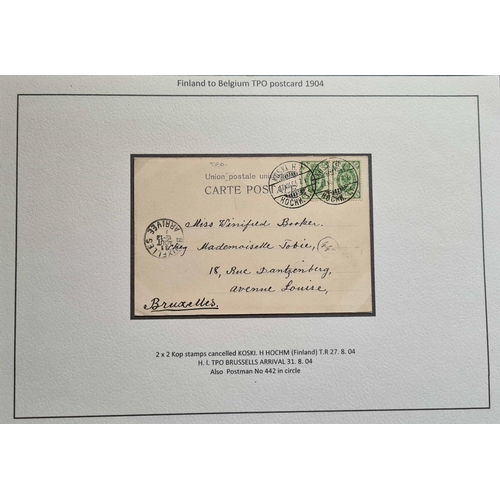 Finland to Belgium TPO postcard 1904
Union postale
CARTE POSTALE
KOSKI. H
HOCHM
Miss Winifred Booker.
Mademoiselle Tobie,
18, Rue Dantzenberg,
avenue Louise,
Bruxelles.
ARRIVEE
2 x 2 Kop stamps cancelled KOSKI. H HOCHM (Finland) T.R 27. 8. 04
H. l. TPO BRUSSELLS ARRIVAL 31. 8. 04
Also Postman No 442 in circle